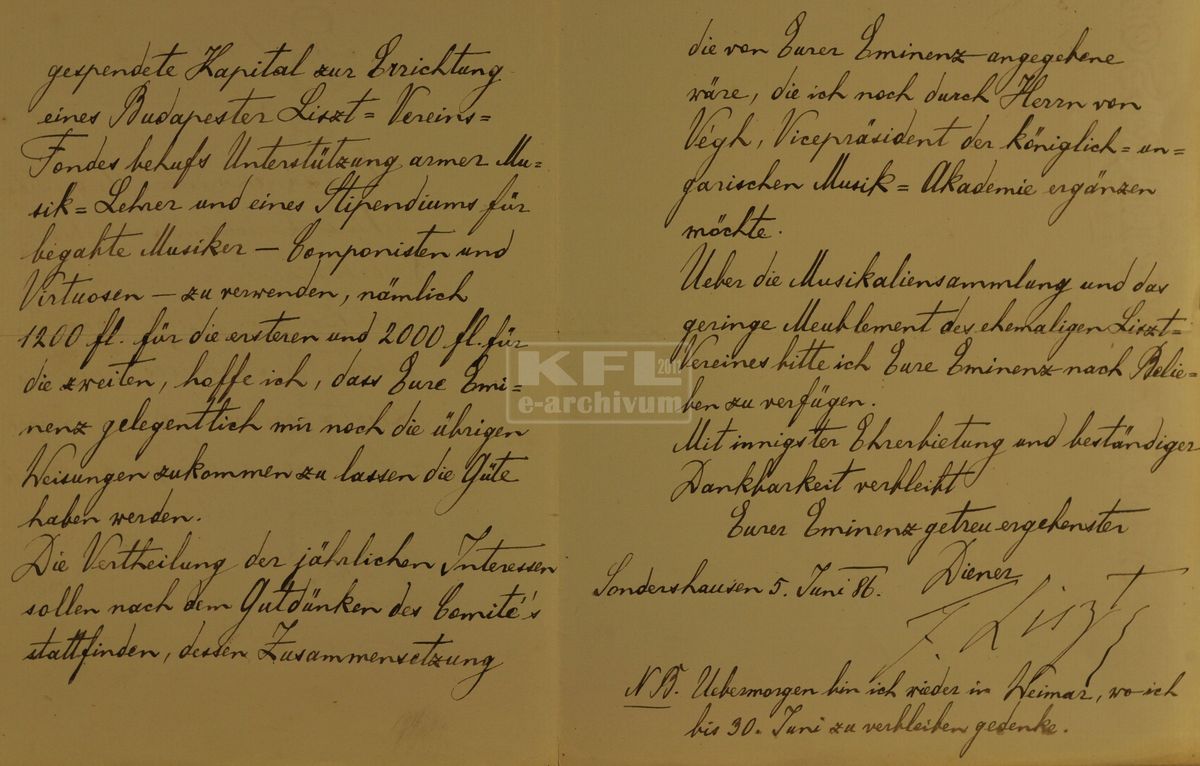 gespendete Kapital zur Errichtung
eines Budapester Liszt = Vereins =
Fondes behufs Unterstützung armer Mu=
sik = Lehrer und eines Stipendiums für
begabte Musiker — Componisten und
Virtuosen — zu verwenden, nämlich
1200 fl. für die ersteren und 2000 fl. für
die zweiten, hoffe ich, dass Eure Emi=
nenz gelegentlich mir noch die übrigen
Weisungen zukommen zu lassen die Güte
haben werden.
Die Vertheilung der jährlichen Interessen
sollen nach dem Gutdünken des Comité's
stattfinden, dessen Zusammensetzung
die von Eurer Eminenz angegebene
wäre, die ich noch durch Herrn von
Végh, Vicepräsident der königlich = un=
garischen Musik = Akademie ergänzen
möchte.
Ueber die Musikaliensammlung und das
geringe Meublement des ehemaligen Liszt=
Vereines bitte ich Eure Eminenz nach Belie=
ben zu verfügen.
Mit innigster Ehrerbietung und beständiger
Dankbarkeit verbleibt
Eurer Eminenz getreu ergebenster
Diener
Sondershausen 5. Juni 86.
F. Liszt
NB. Uebermorgen bin ich wieder in Weimar, wo ich
bis 30. Juni zu verbleiben gedenke.
KFL
e-archivum